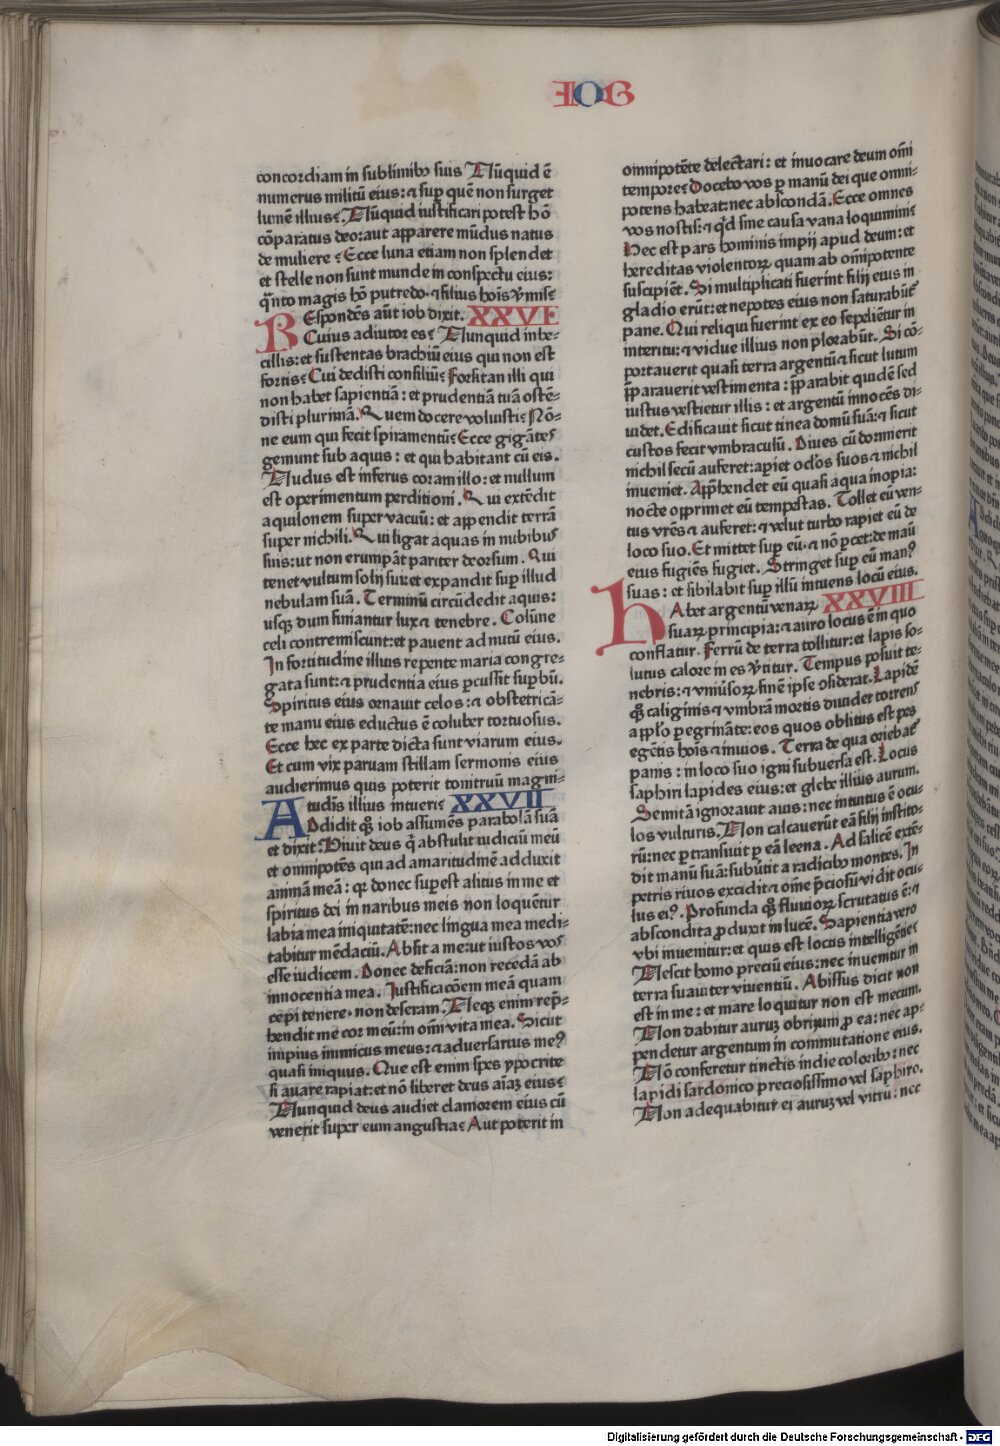 IOB
concordiam in sublimibꝰ suis Nūquid ē
numerus militū eius: ⁊ suꝑ quē non surget
lumē illius: Nūquid iustificari potest hō
cōparatus deo: aut apparere mūdus natus
de muliere: Ecce luna etiam non splendet
et stelle non sunt munde in conspectu eius:
quāto magis hō putredo. ⁊ filius hoīs v̄mis:
REspondēs aūt iob dixit. XXVI
Cuius adiutor es: Nunquid inbe-
cillis: et sustentas brachiū eius qui non est
fortis: Cui dedisti consiliū: Forsitan illi qui
non habet sapientiā: et prudentiā tuā ostē-
disti plurimā. Quem docere voluisti: Nō-
ne eum qui fecit spiramentū: Ecce gigātes
gemunt sub aquis: et qui habitant cū eis.
Nudus est infernus coram illo: et nullum
est operimentum perditioni. Qui extēdit
aquilonem super vacuū: et appendit terrā
super nichili. Qui ligat aquas in nubibus
suis: ut non erumpāt pariter deorsum. Qui
tenet vultum solij sui: et expandit suꝑ illud
nebulam suā. Terminū circūdedit aquis:
usqꝫ dum finiantur lux ⁊ tenebre. Colūne
celi contremiscunt: et pauent ad nutū eius.
In fortitudine illius repente maria congre-
gata sunt: ⁊ prudentia eius ꝑcussit suꝑbū.
Spiritus eius ornauit celos: ⁊ obstetricā-
te manu eius eductus ē coluber tortuosus.
Ecce hec ex parte dicta sunt viarum eius.
Et cum vix paruam stillam sermonis eius
audierimus quis poterit tonitruū magni-
tudīs illius intueri: XXVII
ADdidit qꝫ iob assumēs parabolā suā
et dixit: Viuit deus q̄ abstulit iudiciū meū
et omnipotēs qui ad amaritudinē adduxit
animā meā: qꝛ donec suꝑest alitus in me et
spiritus dei in naribus meis non loquētur
labia mea iniquitatē: nec lingua mea medi-
tabitur mēdaciū. Absit a me: ut iustos vos
esse iudicem. Donec deficiā: non recedā ab
innocentia mea. Iustificacōem meā quam
cepi tenere. non deseram. Neqꝫ enim rep̄-
hendit me cor meū: in om̄i vita mea. Sicut
inpius inimicus meus: ⁊ aduersarius meꝰ
quasi iniquus. Que est enim spes ypocrite
si auare rapiat: et nō liberet deus aīaꝫ eius:
Nunquid deus audiet clamorem eius cū
venerit super eum angustia: Aut poterit in
omnipotēte delectari: et inuocare deum om̄i
tempore: Docebo vos ꝑ manū dei que omni-
potens habeat: nec abscondā. Ecce omnes
vos nostis: ⁊ qͥd sine causa vana loquimini:
Hec est pars hominis impij apud deum: et
hereditas violentoꝝ quam ab omīpotente
suscipiēt. Si multiplicati fuerint filij eius in
gladio erūt: et nepotes eius non saturabūt̄
pane. Qui reliqui fuerint ex eo sepeliētur in
interitu: ⁊ vidue illius non plorabūt. Si cō-
portauerit quasi terra argentū ⁊ sicut lutum
p̄parauerit vestimenta: p̄parabit quidē sed
iustus vestietur illis: et argentū innocēs di-
uidet. Edificauit sicut tinea domū suā: ⁊ sicut
custos fecit vmbraculū. Diues cū dormierit
nichil secū auferet: aꝑiet oclos suos ⁊ nichil
inueniet. App̄hendet eū quasi aqua inopia:
nocte opprimet eū tempestas. Tollet eū ven-
tus vrēs ⁊ auferet: ⁊ velut turbo rapiet eū de
loco suo. Et mittet suꝑ eū. ⁊ nō ꝑcet: de manū
eius fugiēs fugiet. Stringet suꝑ eū manꝰ
suas: et sibilabit suꝑ illū intuens locū eius.
hAbet argentū venaꝝ XXVIII
suaꝝ principia: ⁊ auro locus ē in quo
conflatur. Ferrū de terra tollitur: et lapis so-
lutus calore in es v̄titur. Tempus posuit te-
nebris: ⁊ vniūsoꝝ finē ipse ꝯsiderat. Lapidē
qꝫ caliginis ⁊ vmbrā mortis diuidet torrens
a pplo peregrināte: eos quos oblitus est pes
egētis hoīs ⁊ inuios. Terra de qua oriebat̄
panis: in loco suo igni subuersa est. Locus
saphiri lapides eius: et glebe illius aurum.
Semitā ignorauit auis: nec intuitus ē ocu-
los vulturis. Non calcauerūt eā filij instito-
rū: nec ꝑtransiuit ꝑ eā leena. Ad silicē extē-
dit manū suā: subūtit a radicibꝰ montes. In
petris riuos excidit ⁊ om̄e p̄ciosū vidit ocu-
lus eiꝰ. Profunda qꝫ fluuioꝝ scrutatus ē: ⁊
abscondita ꝓduxit in lucē. Sapientia vero
vbi inuenitur: et quis est locus intelligētie:
Nescit homo preciū eius: nec inuenitur in
terra suauiter viuentiū. Abissus dicit non
est in me: et mare loquitur non est mecum.
Non dabitur auruꝫ obrizum ꝓ ea: nec ap-
pendetur argentum in commutatione eius.
Nō conferetur tinctis indie coloribꝰ: nec
lapidi sardonico preciosissimo vel saphiro.
Non adequabitur ei auruꝫ vel vitrū: nec
Digitalisierung gefördert durch die Deutsche Forschungsgemeinschaft - DFG